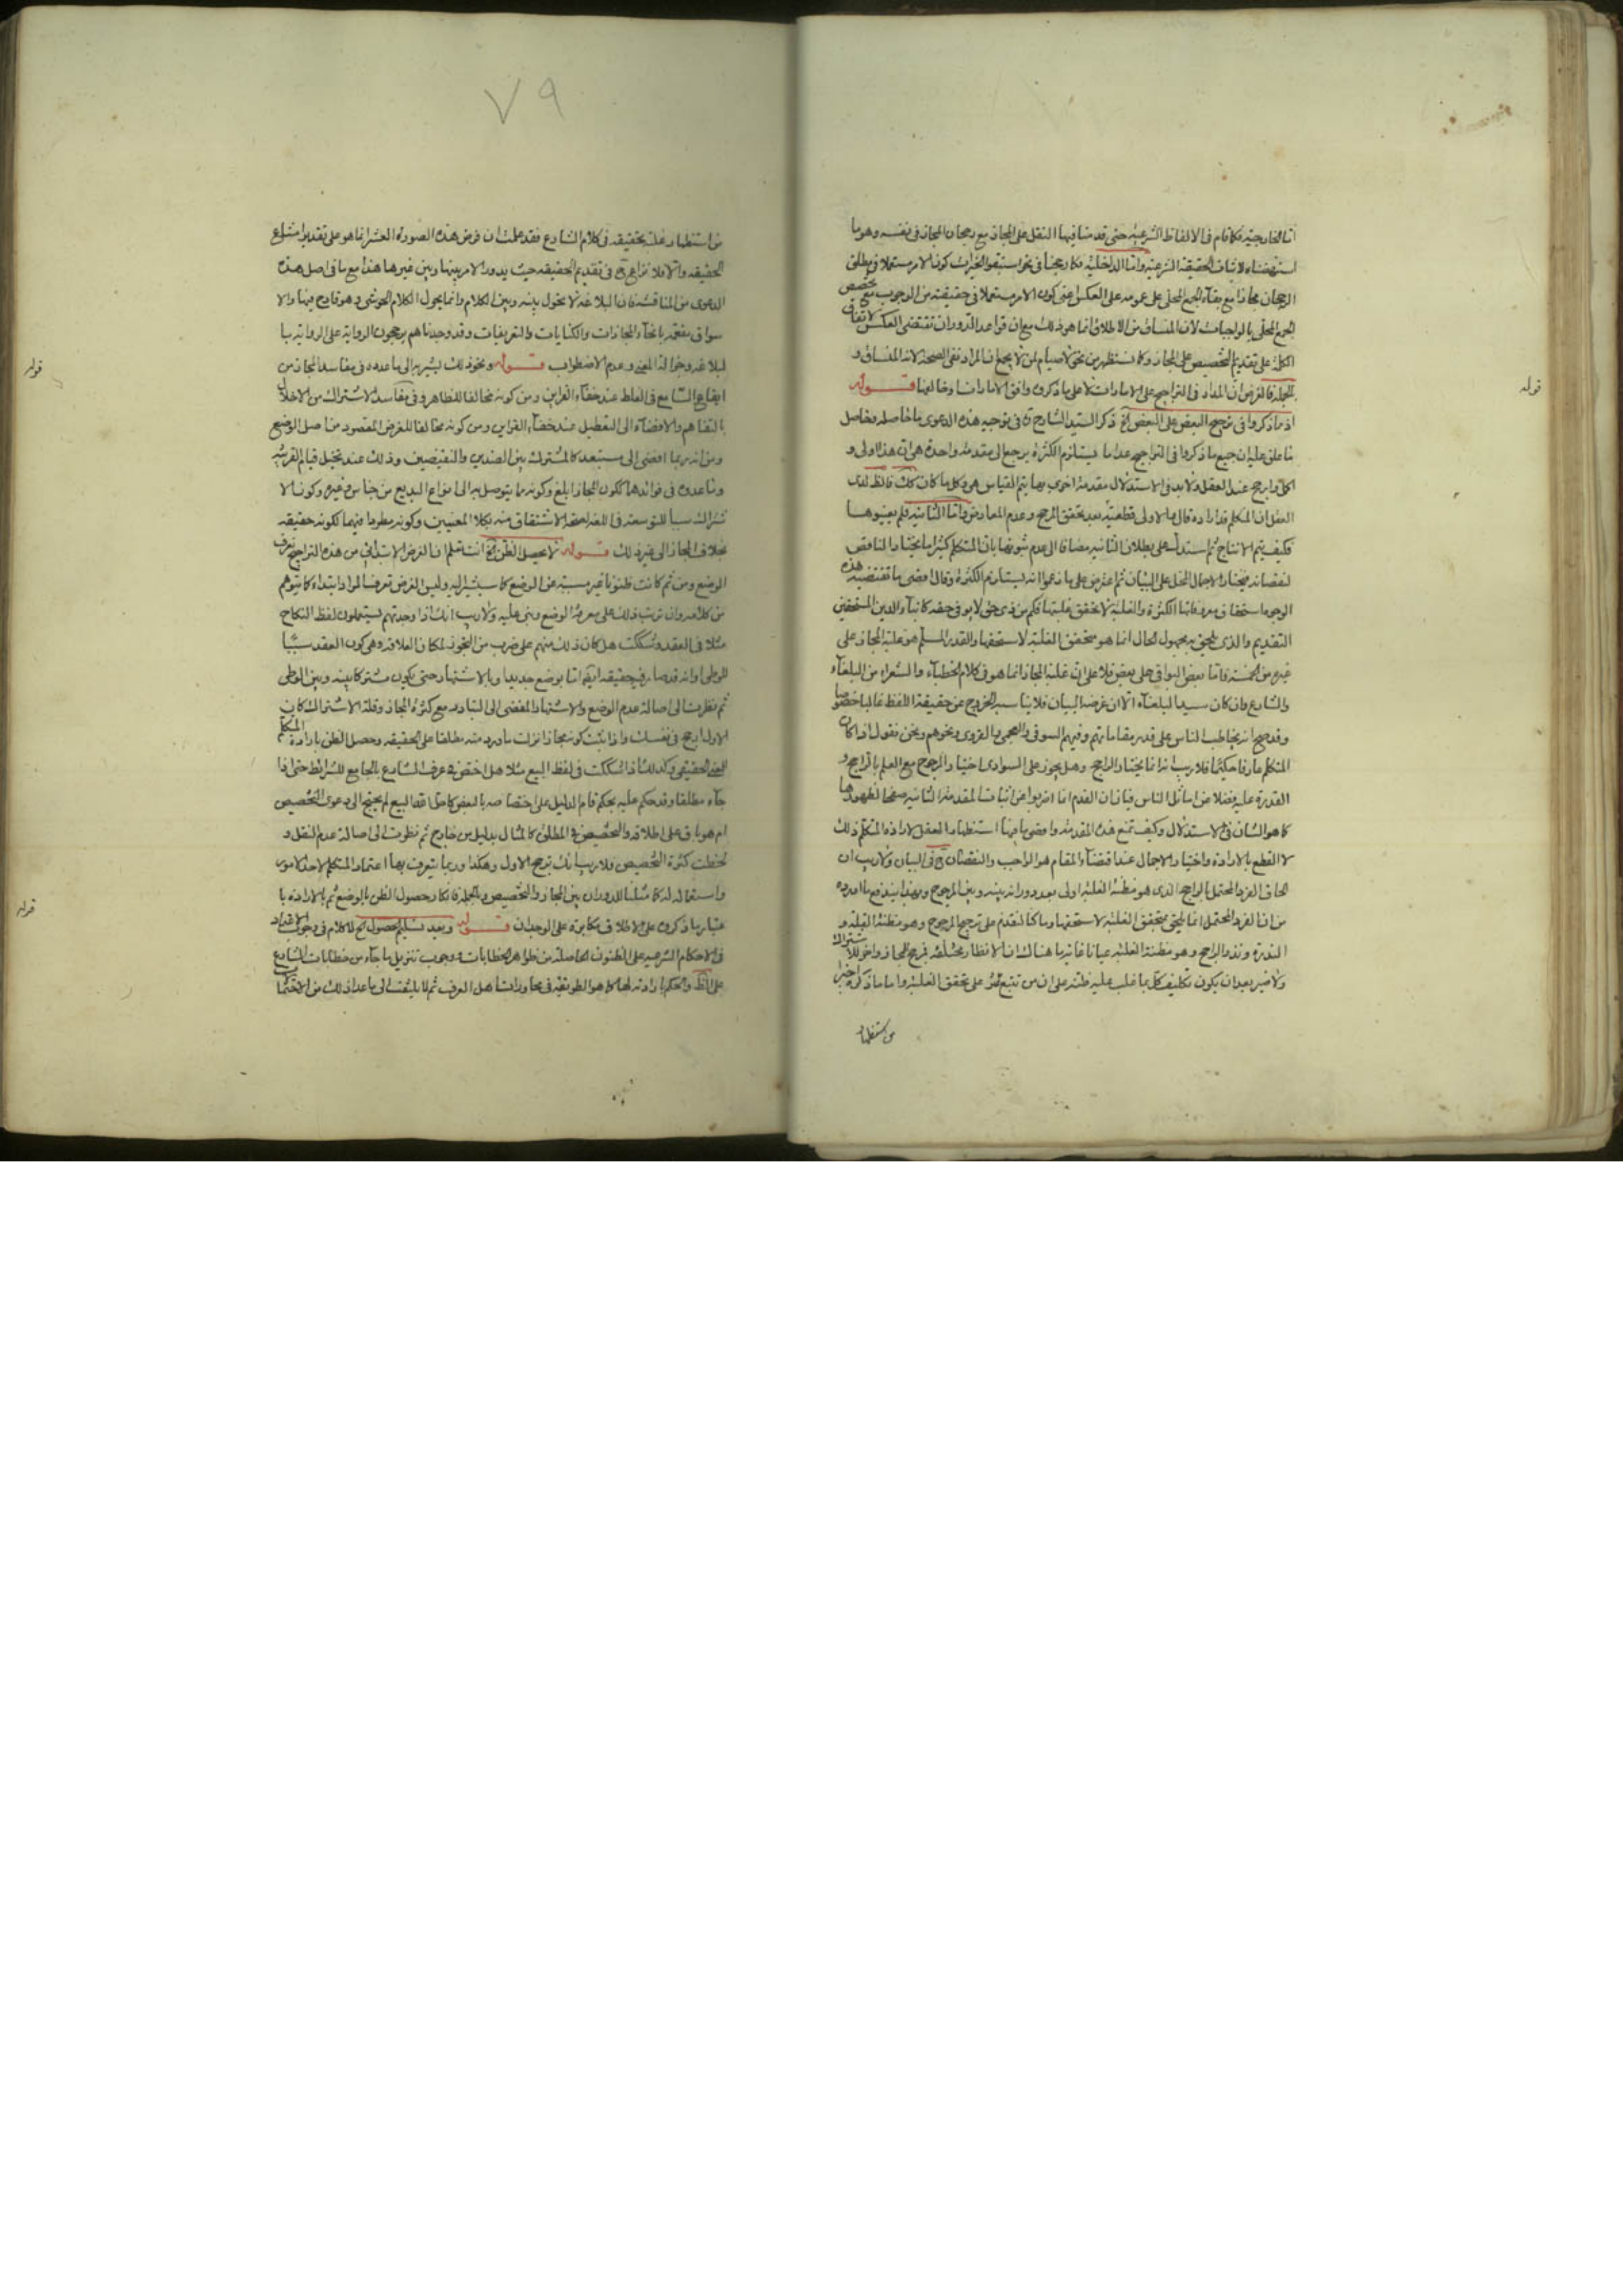 اما الخارجية فكما قام فى الالفاظ الشرعية حتى قدمنا فيها النقل على المجاز مع رجحان المجاز فى نفسه وهو ما
لاثبات الحقيقة الشرعية واما الداخلية فكما رجحنا فى نحو استبقوا الخيرات كون الامر مستعملا فى مطلق
الرجحان مجازا مع بقاء الجمع المحلى على عمومه على العكس اعنى كون الامر مستعملا فى حقيقته من الوجوب مع تخصيص
الجمع المحلى بالواجبات لان المنساق من الاطلاق انما هو ذلك مع ان قواعد الدوران تقتضى العكس لاتفاق
الكل على تقديم التخصيص على المجاز وكما نستظهر من نحو لا صيام لمن لا يجمع ان المراد نفى الصحة لانه المنساق و
بالجملة فالغرض ان المدار فى التراجيح على الامارات لا على ما ذكروه وافق الامارات او خالفها قوله
اذ ما ذكروا فى ترجيح البعض على البعض الخ ذكر السيد الشارح فى توجيه هذه الدعوى ما حاصله وحاصل
ما علق عليه ان جميع ما ذكروا فى التراجيح عدا ما يستلزم الكثرة يرجع الى مقدمة واحدة هى ان هذا اولى و
ارجح عند العقل ولا بد فى الاستدلال مقدمة اخرى بها يتم القياس هى وكل ما كان كك فالظ لدى
العقل ان المتكلم قد اراده قال والاولى قطعية بعد تحقق المرجح وعدم المعارض واما الثانية فلم يعتبروها
فكيف يتم الانتاج ثم استدل على بطلان الثانية مضافا الى عدم ثبوتها بان المتكلم كثيرا ما يختار الناقص
لنقصانه فيختار الاجمال المخل على البيان ثم اعترض على ما زعموا انه يستلزم الكثرة وقال اقصى ما تقتضيه هذه
الوجوه استحقاق معروضاتها الكثرة والغلبة لا تحقق غلبتها فكم من ذى حق لا يوفى حقه كابناء الدين المستحقين
التقديم والذى يلحق به مجهول الحال انما هو متحقق الغلبة لا مستحقها والقدر المسلم هو غلبة المجاز على
غيره من الخمسة فاما بعض البواقى على بعض فلا على ان غلبة المجاز انما هو فى كلام الخطباء والشعراء من البلغاء
والشارع وان كان سيد البلغاء الا ان غرضه البيان فلا يناسبه الخروج عن حقيقة اللفظ غالبا خصوصا
وقد صح انه يخاطب الناس على قدر مقاماتهم وفيهم السوقى والعجمى والقروى ونحوهم ونحن نقول اذا كان
المتكلم عارفا حكيما فلا ريب انه انما يختار الراجح وهل يجوز على السوادى اختيار المرجوح مع العلم بالراجح و
القدرة عليه فضلا عن اماثل الناس فبان ان القدم انما اضربوا عن اثبات المقدمة الثانية صفحا لظهورها
كما هو الشان فى الاستدلال وكيف تمنع هذه المقدمة واقصى ما فيها استظهار العقل لارادة المتكلم ذلك
لا القطع بالارادة واختيار الاجمال عند اقتضاء المقام هو الواجب والنقصان ح فى البيان ولا ريب ان
الحاق الفرد المحتمل بالراجح الذى هو مظنة الغلبة اولى بعد دورانه بينه وبين المرجوح وبهذا يندفع ما اورده
من ان الفرد المحتمل انما يلحق بمتحقق الغلبة لا مستحقها وما كنا لنقدم على ترجيح المرجوح وهو مظنة القلة و
الندرة ونذر الراجح وهو مظنة الغلبة عيانا غاية ما هناك ان الانظار مختلفة فمرجح للمجاز واخر للاشتراك
ولا ضير بعد ان يكون تكليف كل بما غلب عليه ظنه على ان من تتبع عثر على تحقق الغلبة واما ما ذكره اخيرا
من استظهار
قوله
٧٩
من استظهار غلبة تحقيقه فى كلام الشارع فقد علمت ان فرض هذه الصورة العشر انما هو على تقدير امتناع
الحقيقة والا فلا نزاع ح فى تقديم الحقيقة حيث يدور الامر بينها وبين غيرها هذا مع ما فى اصل هذه
الدعوى من المناقشة فان البلاغة لا تحول بينه وبين الكلام وانما يحول الكلام الحوشى وهو قادح فيها والا
سواق مفعمة بانحاء المجازات والكنايات والتعريفات وقد وجدناهم يرجحون الرواية على الرواية با
لبلاغة وجزالة المعنى وعدم الاضطراب قوله ونحو ذلك يشير به الى ما عددوه فى مفاسد المجاز من
ايقاع السامع فى الغلط عند خفاء القراين ومن كونه مخالفا للظاهر وفى مفاسد الاشتراك من الاخلال
بالتفاهم والافضاء الى التعطيل عند خفاء القراين ومن كونه مخالفا للغرض المقصود من اصل الوضع
ومن انه ربما افضى الى مستبعد كالمشترك بين الضدين والنقيضين وذلك عند تخيل قيام القرينة
وما عدوه فى فوائدها ككون المجاز ابلغ وكونه مما يتوصل به الى انواع البديع من جناس وغيره وكون الا
شتراك سببا للتوسعة فى اللغة لصحة الاشتقاق منه بكلا المعنيين وكونه مطردا فيهما لكونه حقيقة
بخلاف المجاز الى غير ذلك قوله لا يحصل الظن الخ انت تعلم ان الغرض الابتدائى من هذه التراجيح تعرف
الوضع ومن ثم كانت ظنونا غير مسببة عن الوضع كما سيشير اليه وليس الغرض تعرف المراد ابتداء كما يتوهم
من كلامه وان ترتب ذلك على معرفة الوضع وبنى عليه ولا ريب انك اذا وجدتهم يستعملون لفظ النكاح
مثلا فى العقد وشككت هل كان ذلك منهم على ضرب من التجوز لمكان العلاقة وهى كون العقد سببا
للوطى او انه قد صار فيه حقيقة ايضا اما بوضع جديد او بالاشتهار حتى يكون مشتركا بينه وبين الوطى
ثم نظرت الى اصالة عدم الوضع والاشتهار المفضى الى التبادر مع كثرة المجاز وقلة الاشتراك كان
الاول ارجح فى نفسك واذا ثبت كونه مجازا نزلت ما ورد منه مطلقا على الحقيقة وحصل الظن بارادة المتكلم
المعنى الحقيقى وكذلك اذا شككت فى لفظ البيع مثلا هل اختص فى عرف الشارع بالجامع للشرائط حتى اذا
جاء مطلقا وقد حكم عليه بحكم قام الدليل على اختصاصه بالبعض كاحل الله البيع لم يحتج الى دعوى التخصيص
ام هو باق على اطلاقه والتخصيص فى المطلق كالمثال بدليل من خارج ثم نظرت الى اصالة عدم النقل و
لحظت كثرة التخصيص فلا ريب انك ترجح الاول وهكذا وربما يتعرف بها اعتماد المتكلم لاحد الامور
واستعماله له كما مثلنا للدوران بين المجاز والتخصيص وبالجملة فانكار حصول الظن بالوضع ثم بالارادة با
عتبار ما ذكروه على الاطلاق مكابرة على الوجدان قوله وبعد تسليم حصول الخ لا كلام فى وجوب الاعتماد
فى الاحكام الشرعية على الظنون الحاصلة من ظواهر الخطابات ووجوب تنزيل ما جاء من خطابات الشارع
على الظ والحكم بارادته لها كما هو الطريقة فى محاورات اهل العرف ثم لا يلتفت الى ما عدا ذلك من الاحتمالات
قوله
قوله